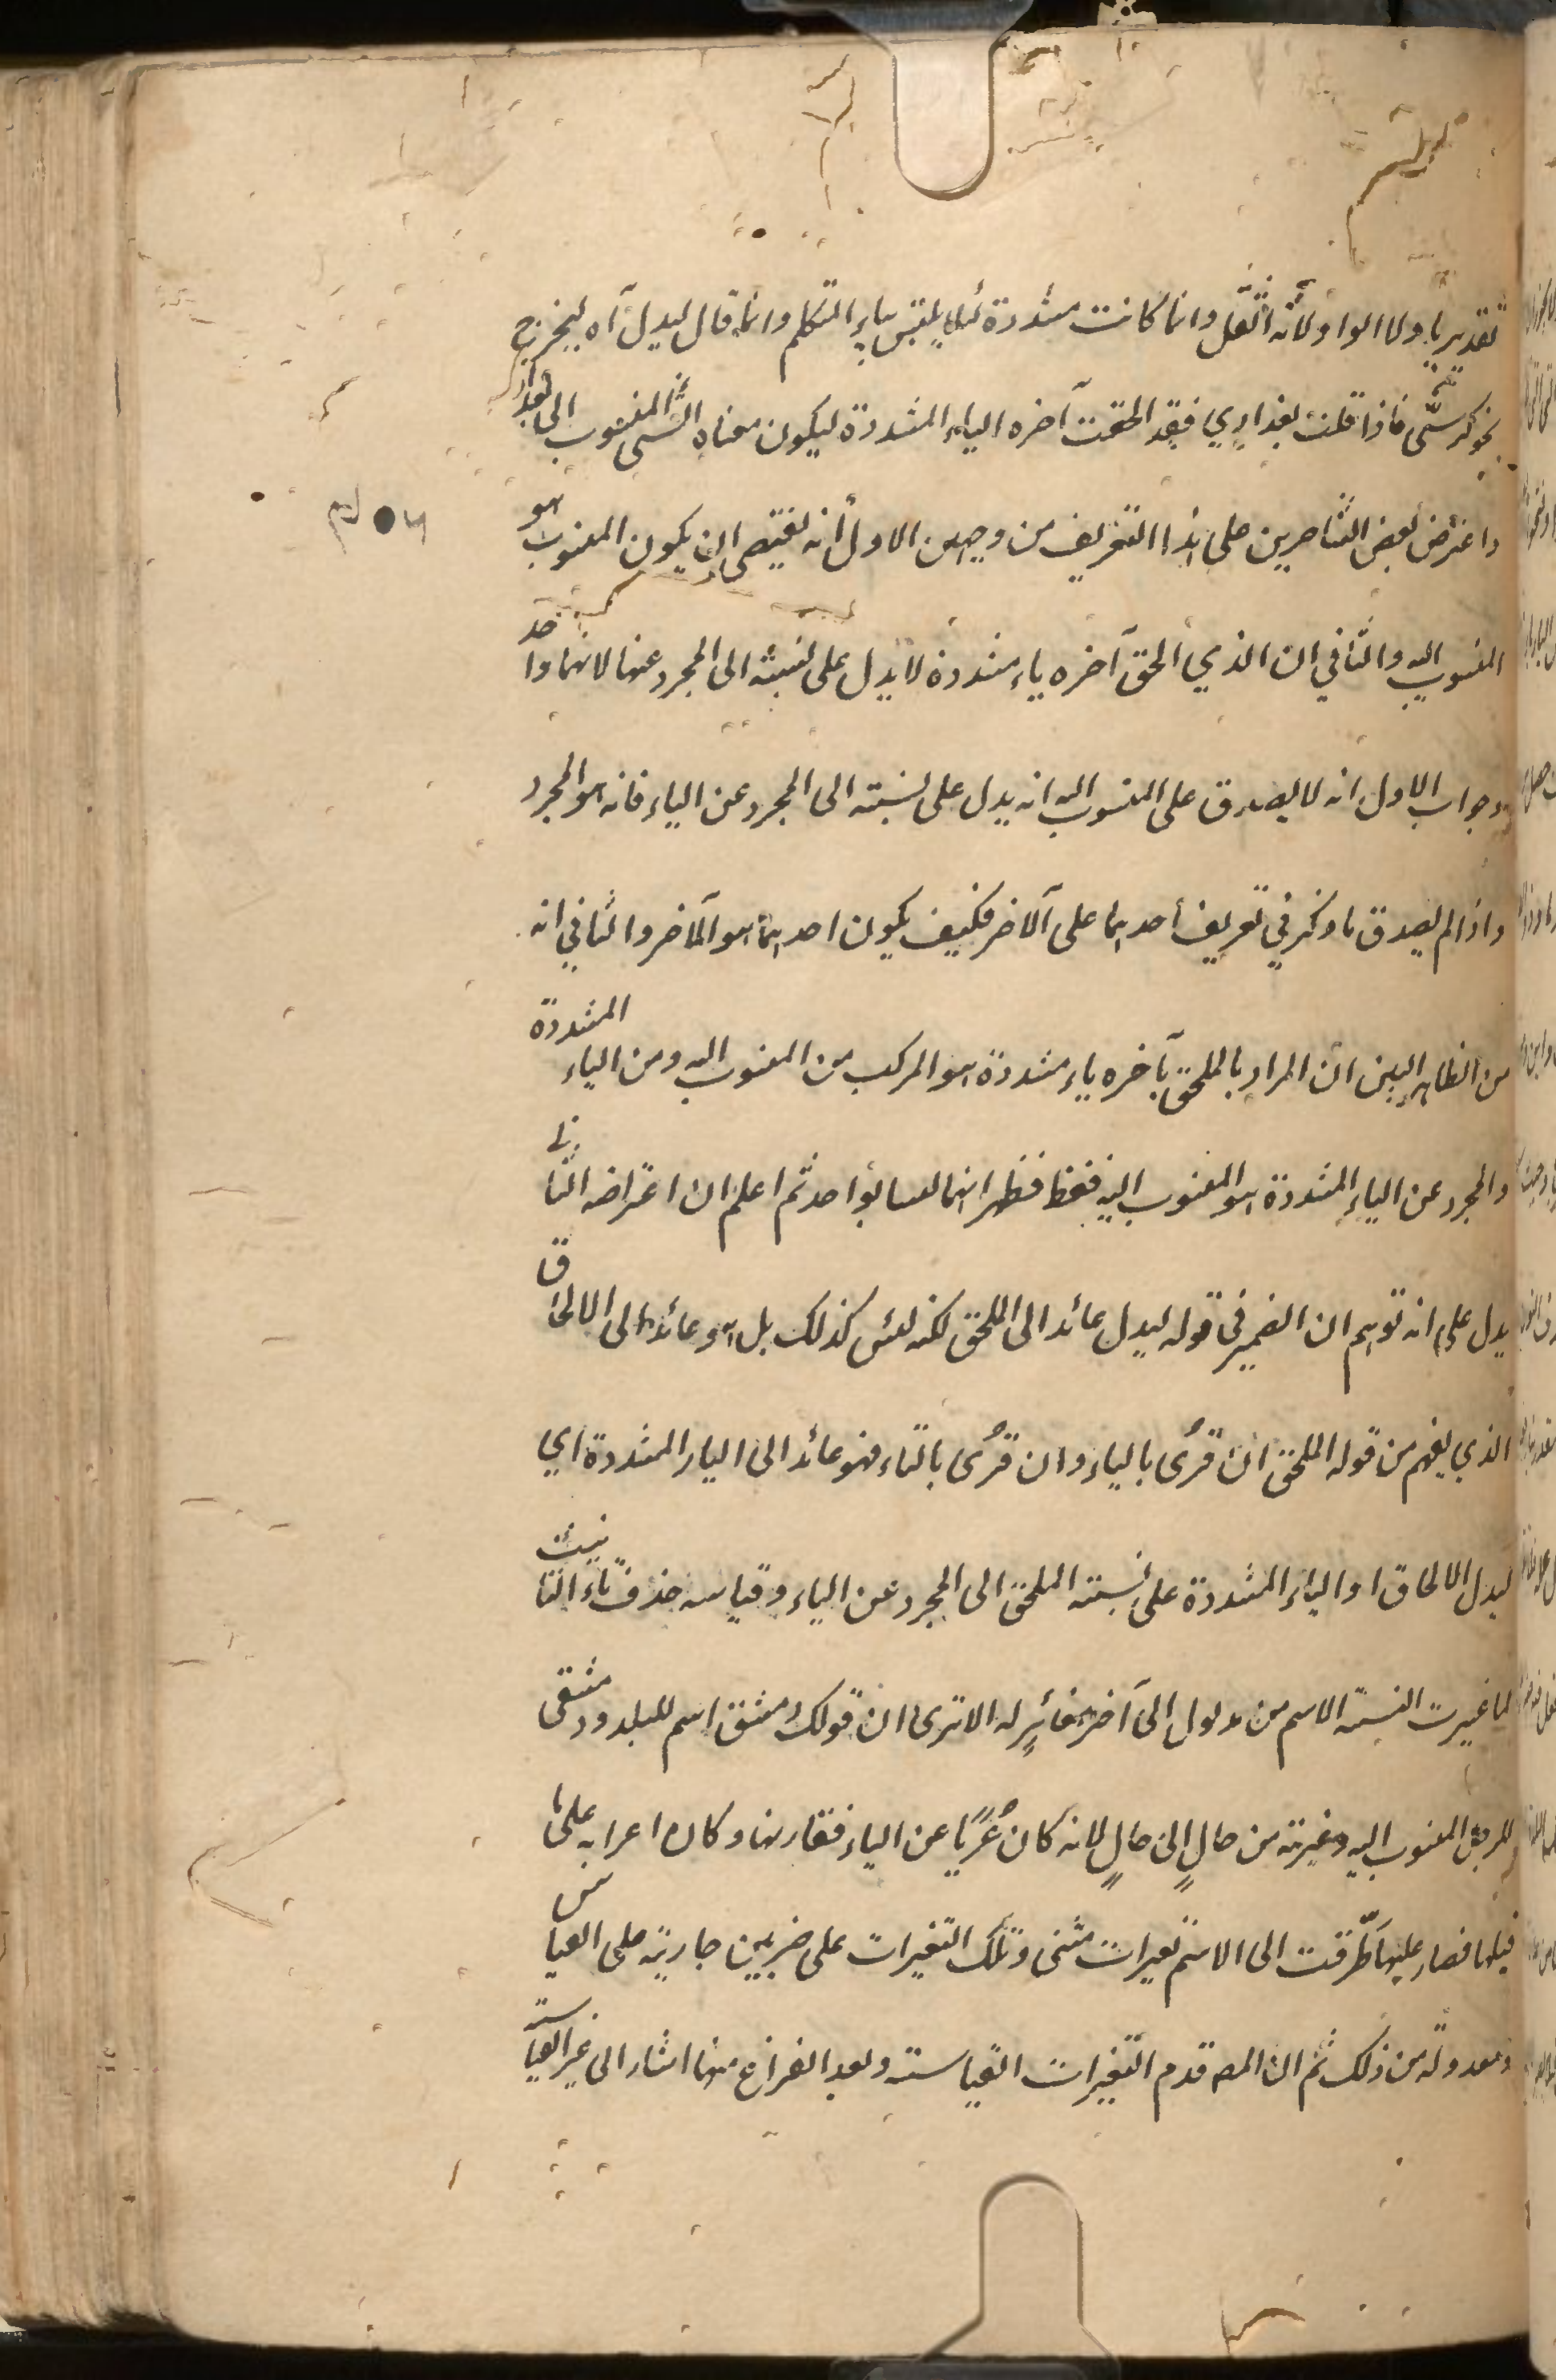 تقديريا ولا الواو لأنه اثقل وانما كانت مشددة لئلا يلتبس بياء المتكلم وانما قال ليدل آه ليخرج
نحو كرسىّ فاذا قلت بغدادي فقد الحقت آخره الياء المشددة ليكون معناه الشئ المنسوب الى بغداد
واعترض بعض الشارحين على هذا التعريف من وجهين الاول أنه يقتضى ان يكون المنسوب هو
المنسوب اليه والثاني ان الذي الحق آخره ياء مشددة لا يدل على نسبته الى المجرد عنها لانهما واحد
وجواب الاول انه لا يصدق على المنسوب اليه انه يدل على نسبته الى المجرد عن الياء فانه هو المجرد
واذا لم يصدق ما ذكر في تعريف أحدهما على الآخر فكيف يكون احدهما هو الآخر والثاني انه
من الظاهر البين ان المراد بالملحق بآخره ياء مشددة هو المركب من المنسوب اليه ومن الياء المشددة
والمجرد عن الياء المشددة هو المنسوب اليه فقط فظهر انهما ليسا بواحد ثم اعلم ان اعتراضه الثاني
يدل على انه توهم ان الضمير في قوله ليدل عائد الى الملحق لكنه ليس كذلك بل هو عائد الى الالحاق
الذي يفهم من قوله الملحق ان قرُئ بالياء وان قرُئ بالتاء فهو عائد الى الياء المشددة اي
ليدل الالحاق او الياء المشددة على نسبته الملحق الى المجرد عن الياء وقياسه حذف تاء التانيث
لما غيرت النسبة الاسم من مدلول الى آخر مغائرٍ له الا ترى ان قولك دمشق اسم للبلد ودمشقى
للرجل المنسوب اليه وغيرته من حالٍ الى حالٍ لانه كان عُرًيا عن الياء فقارنها وكان اعرابه على ما
قبلها فصار عليها طرّقت الى الاسم تغيرات شتى وتلك التغيرات على ضربين جارية على القياس
ومعدولة من ذلك ثم ان المص قدم التغيرات القياسية وبعد الفراغ منها اشار الى غير القياسية